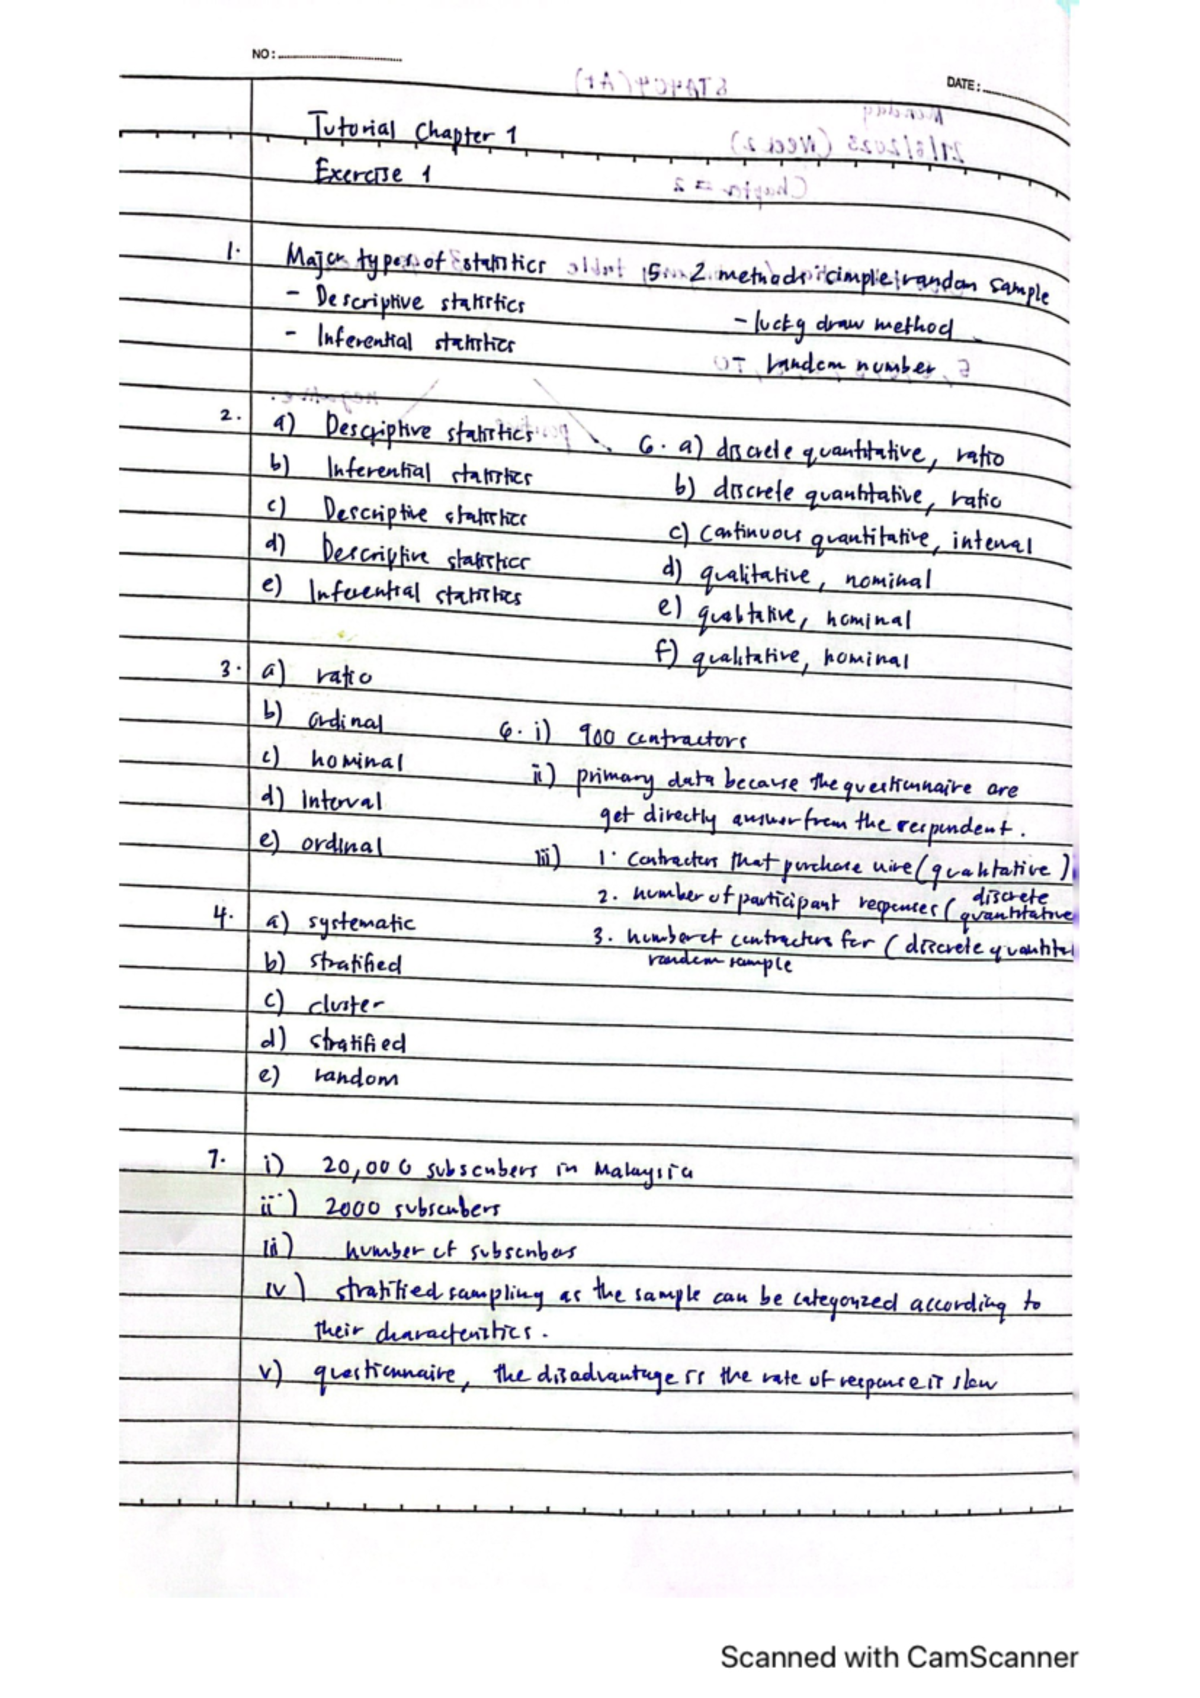 NO:
DATE:
Tutorial Chapter 1
Exercise 1
1. Major types of statistics
- Descriptive statistics
- Inferential statistics
2. a) Descriptive statistics
b) Inferential statistics
c) Descriptive statistics
d) Descriptive statistics
e) Inferential statistics
3. a) ratio
b) ordinal
c) nominal
d) interval
e) ordinal
4. a) systematic
b) stratified
c) cluster
d) stratified
e) random
5 2 methods simple random sample
- lucky draw method
random number
6. a) discrete quantitative, ratio
b) discrete quantitative, ratio
c) Continuous quantitative, interval
d) qualitative, nominal
e) qualitative, nominal
f) qualitative, nominal
6. i) 900 contractors
ii) primary data because the questionnaire are
get directly answer from the respondent.
iii) 1. Contractors that purchase wire (qualitative)
2. number of participant responses (discrete
quantitative
3. number of contractors for (discrete quantitat
random sample
7. i) 20,000 subscribers in Malaysia
ii) 2000 subscribers
iii) number of subscribers
iv) stratified sampling as the sample can be categorized according to
their characteristics.
v) questionnaire, the disadvantage is the rate of response is slow
Scanned with CamScanner